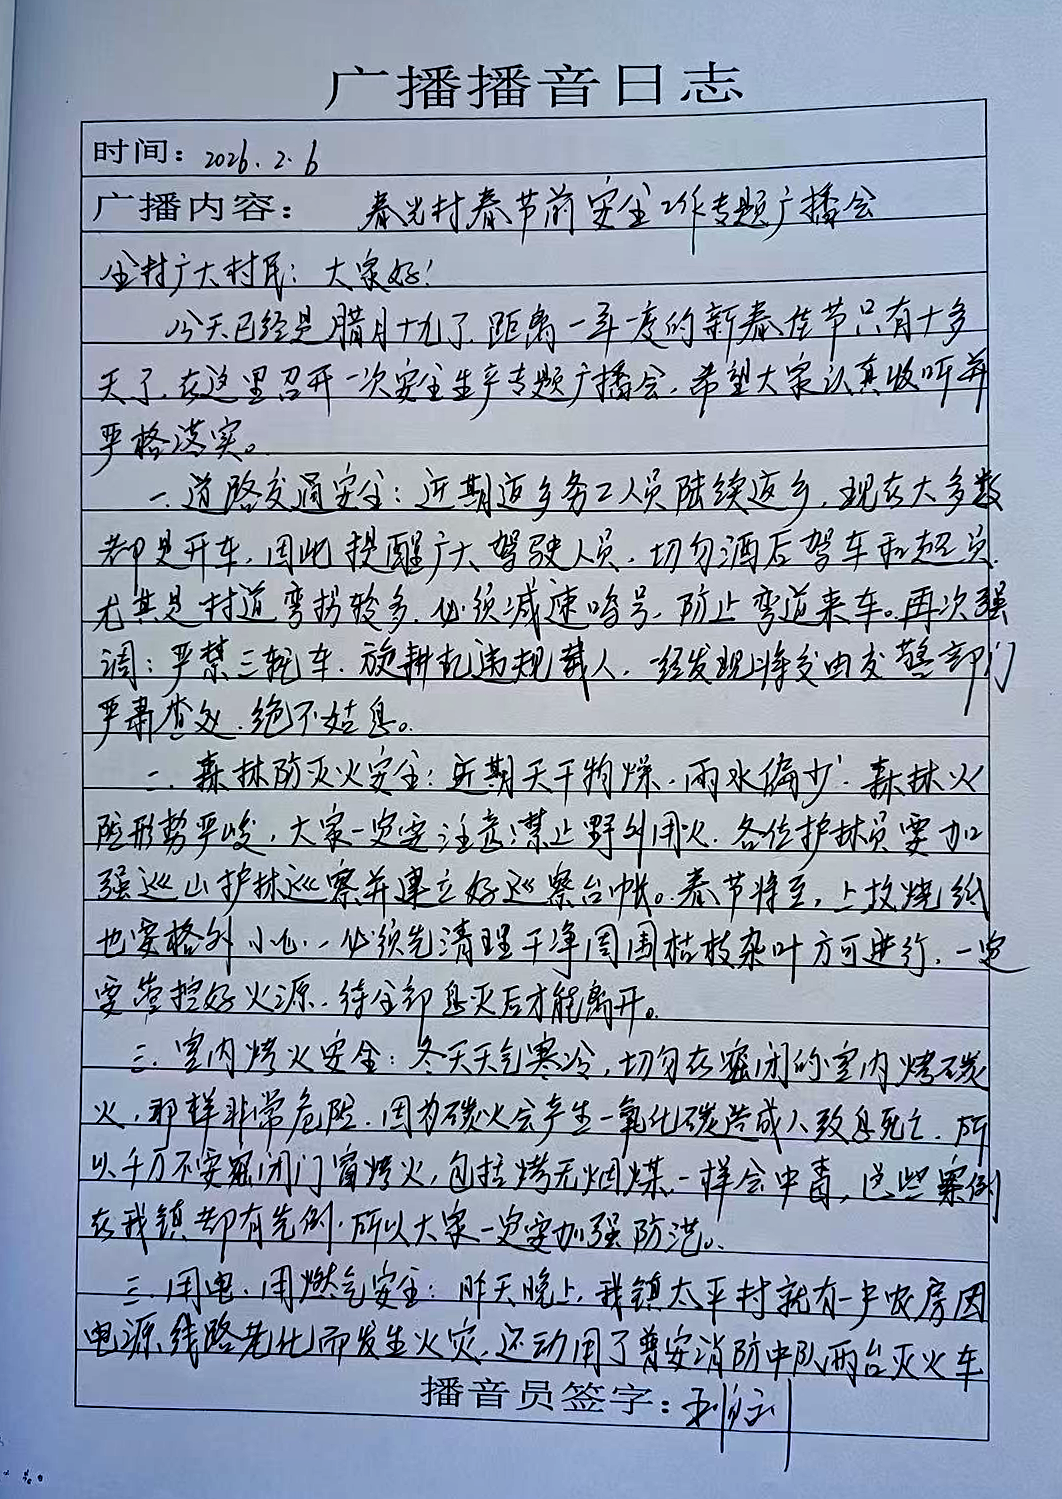 广播播音日志
时间：2026.2.6
广播内容： 春光村春节前安全工作专题广播会
全村广大村民：大家好！
今天已经是腊月十九了.距离一年一度的新春佳节只有十多
天了.在这里召开一次安全生产专题广播会，希望大家认真收听并
严格落实。
一.道路交通安全：近期返乡务工人员陆续返乡，现在大多数
都是开车，因此提醒广大驾驶人员，切勿酒后驾车和超员.
尤其是村道弯拐较多，必须减速鸣号，防止弯道来车。再次强
调：严禁三轮车.旋耕机违规载人，一经发现将交由交警部门
严肃查处.绝不姑息。
二.森林防灭火安全：近期天干物燥.雨水偏少.森林火
险形势严峻，大家一定要注意：禁止野外用火.各位护林员要加
强巡山护林巡察并建立好巡察台帐。春节将至，上坟烧纸
也要格外小心，必须先清理干净周围枯枝杂叶方可进行，一定
要管控好火源.待全部息灭后才能离开。
三.室内烤火安全：冬天天气寒冷，切勿在密闭的室内烤碳
火，那样非常危险.因为碳火会产生一氧化碳造成人致息死亡.所
以千万不要密闭门窗烤火，包括烤无烟煤.一样会中毒，这些案例
在我镇都有先例.所以大家一定要加强防范。
三.用电.用燃气安全：昨天晚上，我镇太平村就有一户农房因
电源线路老化而发生火灾.还动用了普安消防中队两台灭火车
播音员签字：